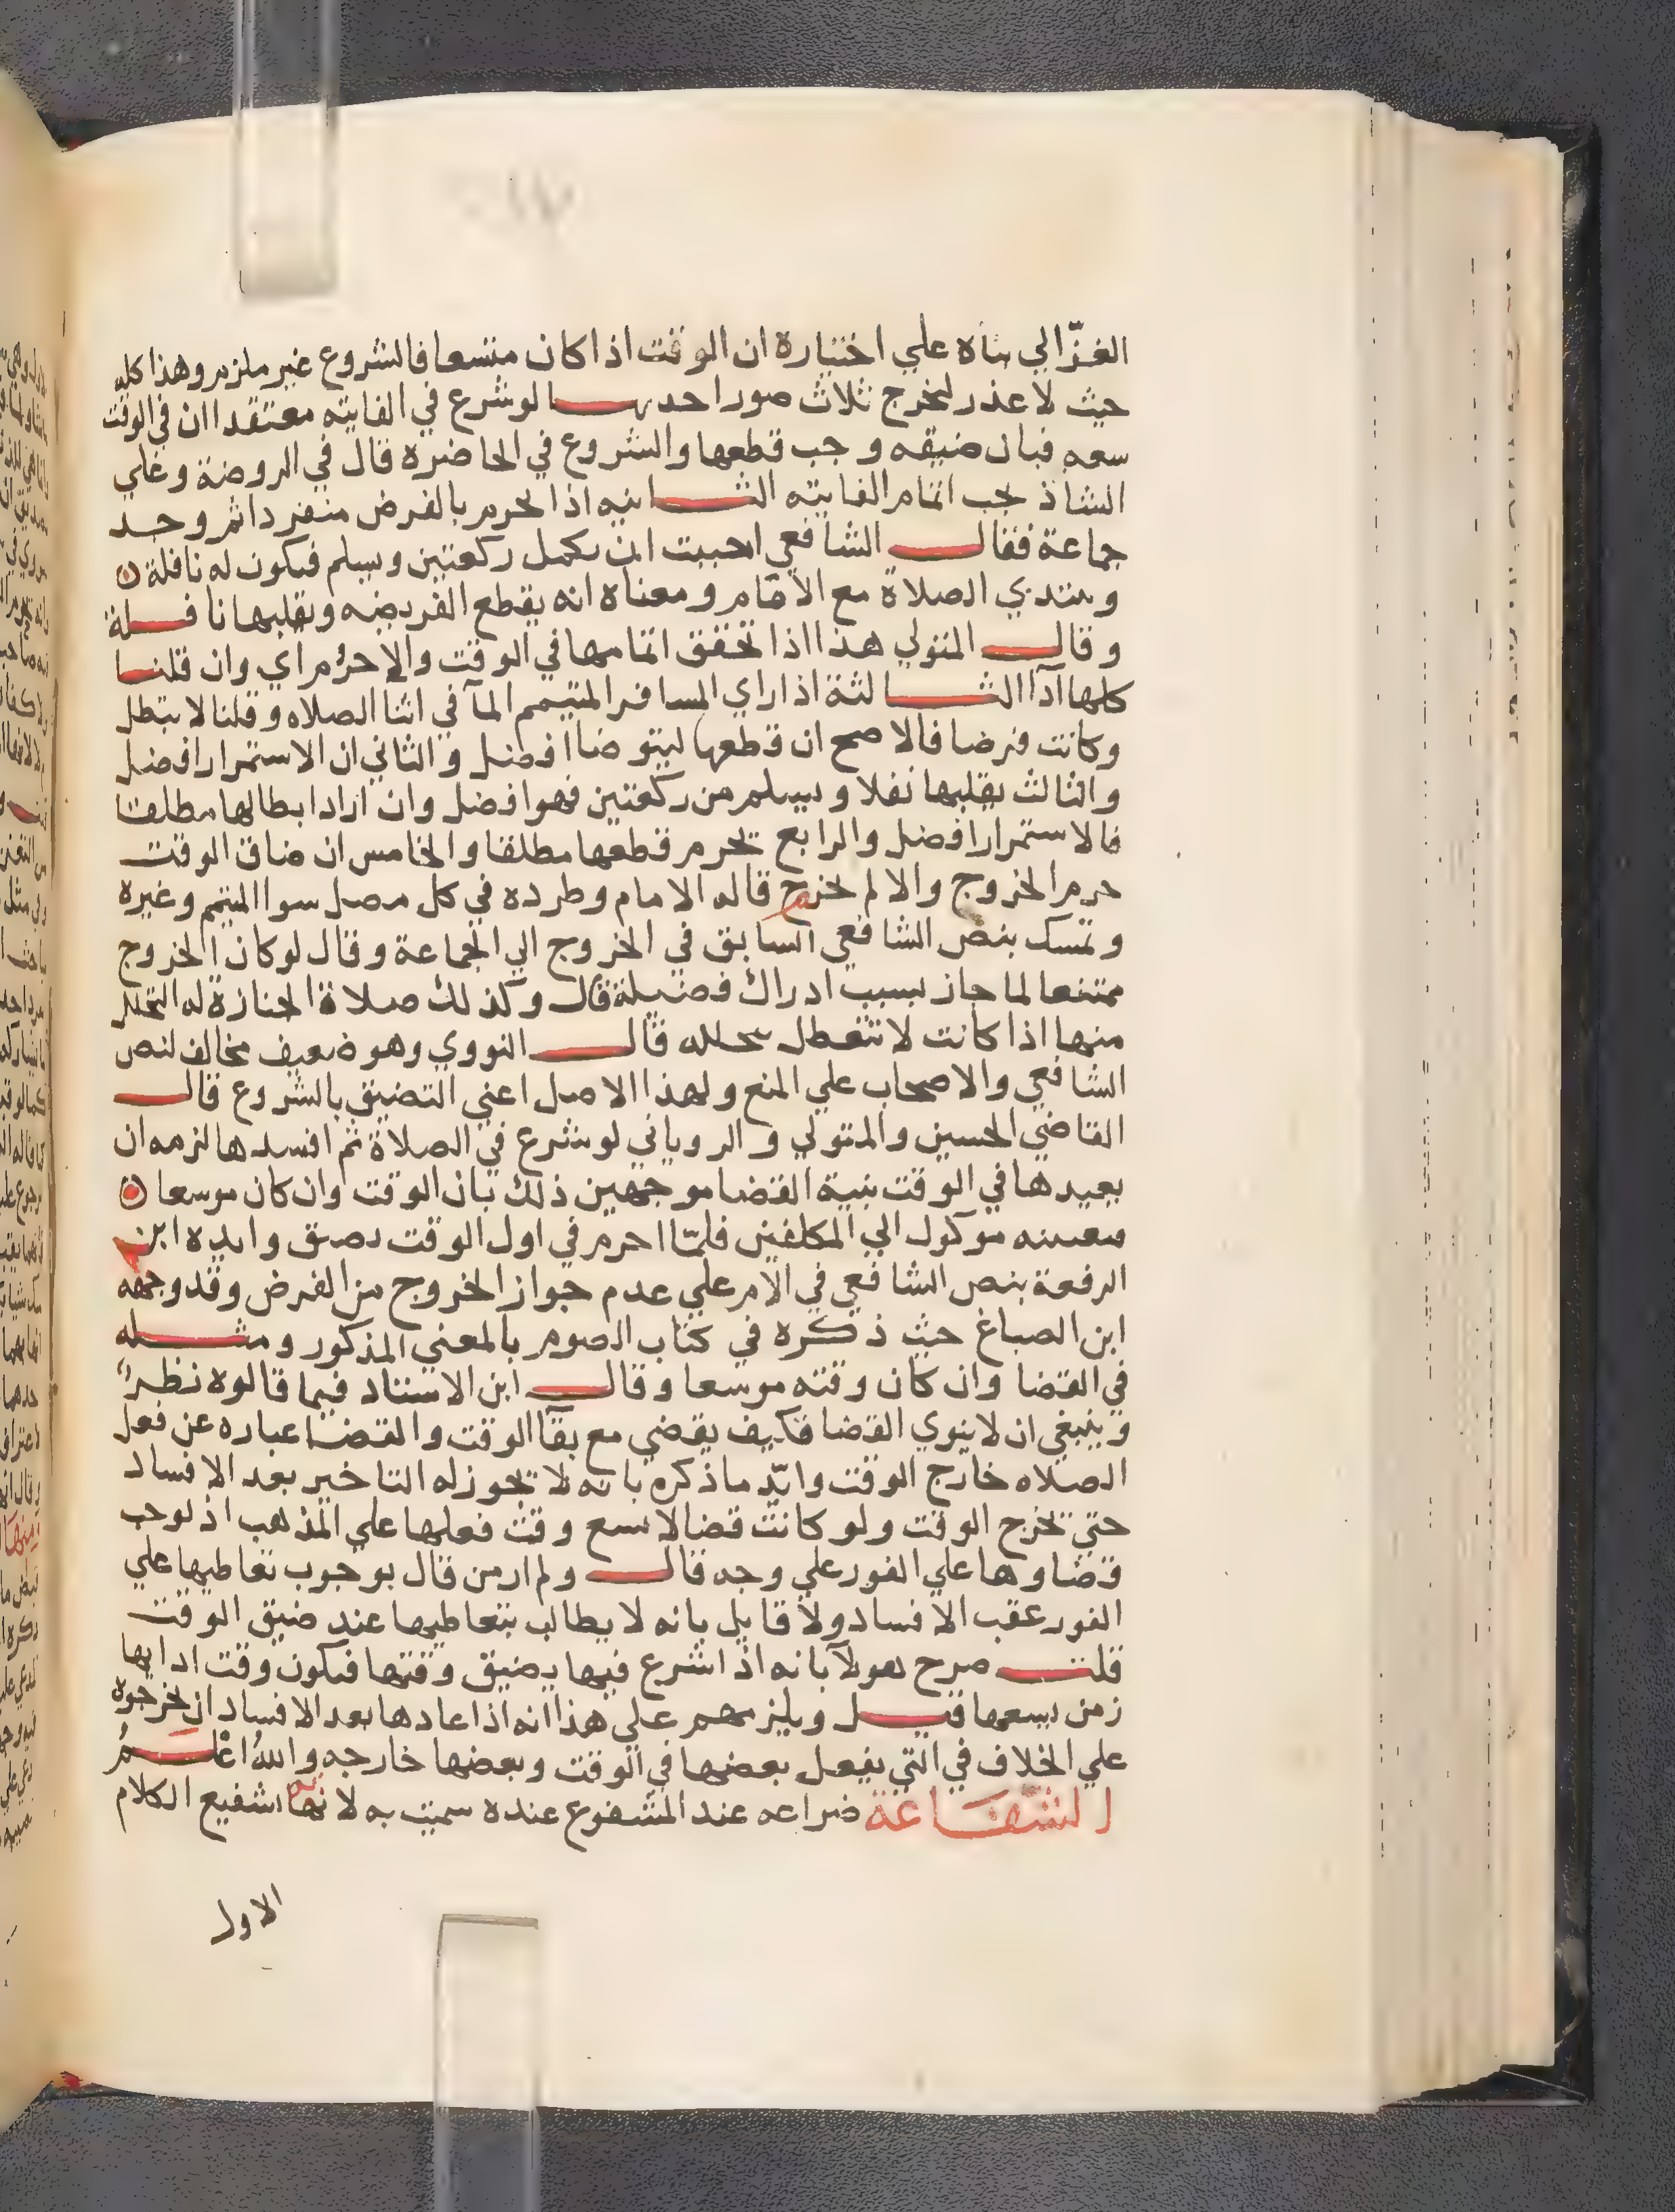 الغزّالي بناه علي اختياره ان الوقت اذا كان متسعا فالشروع غير ملزم وهذا كله
حيث لا عذر ليخرج ثلاث صور احدىها لو شرع في الفايته معتقدا ان في الوقت
سعه فبان ضيقه وجب قطعها والشروع في الحاضرة قال في الروضة وعلي
الشاذ يجب اتمام الفايته الثانيه اذا تحرم بالفرض منفردا ثم وجد
جماعة فقال الشافعي احببت ان يكمل ركعتين ويسلم فيكون له نافلة
ويبتدي الصلاة مع الامام ومعناه انه يقطع الفريضه ويقلبها نافلة
وقال المتولي هذا اذا تحقق اتمامها في الوقت والا حرُم اي وان قلنا
كلها آدا الثالثة اذا راي المسافر المتيمم المآ في اثنا الصلاه وقلنا لا تبطل
وكانت فرضا فالاصح ان قطعها ليتوضا افضل والثاني ان الاستمرار افضل
والثالث يقلبها نفلا ويسلم من ركعتين فهو افضل وان اراد ابطالها مطلقا
فالاستمرار افضل والرابع يحرم قطعها مطلقا والخامس ان ضاق الوقت
حرم الخروج والا لم يحرم قاله الامام وطرده في كل مصل سوا المتيمم وغيره
وتمسك بنص الشافعي السابق في الخروج الي الجماعة وقال لو كان الخروج
ممتنعا لما جاز بسبب ادراك فضيلة قال وكذلك صلاة الجنازة له التحلل
منها اذا كانت لا تتعطل بتحلله قال النووي وهو ضعيف مخالف لنص
الشافعي والاصحاب علي المنع ولهذا الاصل اعني التضييق بالشروع قال
القاضي الحسين والمتولي والروياني لو شرع في الصلاة ثم افسدها لزمه ان
يعيدها في الوقت بنية القضا موجهين ذلك بان الوقت وان كان موسعا
فتعيينه موكول الي المكلفين فلمّا احرم في اول الوقت تضيق وايده ابن
الرفعة بنص الشافعي في الام علي عدم جواز الخروج من الفرض وقد وجهه
ابن الصباغ حيث ذكره في كتاب الصوم بالمعني المذكور ومثله
في القضا وان كان وقته موسعا وقال ابن الاستاد فيما قالوه نظر
وينبغي ان لا ينوي القضا فكيف يقضي مع بقآ الوقت والقضا عباره عن فعل
الصلاه خارج الوقت وايّد ما ذكره بانه لا يجوز له التاخير بعد الافساد
حتي يخرج الوقت ولو كانت قضا لاتسع وقت فعلها علي المذهب اذ لوجب
قضاوها علي الفور علي وجه قال ولم ار من قال بوجوب تعاطيها علي
الفور عقب الافساد ولا قايل بانه لا يطالب بتعاطيها عند ضيق الوقت
قلت صرح هولآ بانه اذا شرع فيها يضيق وقتها فيكون وقت ادايها
زمن يسعها قيل ويلزمهم علي هذا انه اذا عادها بعد الافساد ان يخرجوه
علي الخلاف في التي يفعل بعضها في الوقت وبعضها خارجه والله اعلم
الشفاعة ضراعه عند المشفوع عنده سميت به لانها شفيع الكلام
الاول